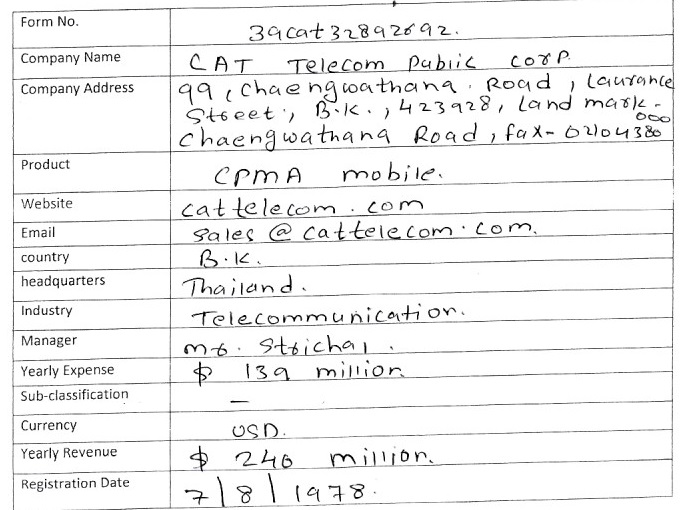 Form No. 39cat32892692.
Company Name CAT Telecom Public corp.
Company Address 99, Chaengwathana. Road, Laurance
Street, B.K., 423928, Land mark-
Chaengwathana Road, fax- 02104380
000
Product CPMA mobile.
Website cattelecom.com
Email sales@cattelecom.com.
country B.K.
headquarters Thailand.
Industry Telecommunication.
Manager Mr. Strichal.
Yearly Expense $ 139 million
Sub-classification –
Currency USD.
Yearly Revenue $ 246 million.
Registration Date 7/8/1978.